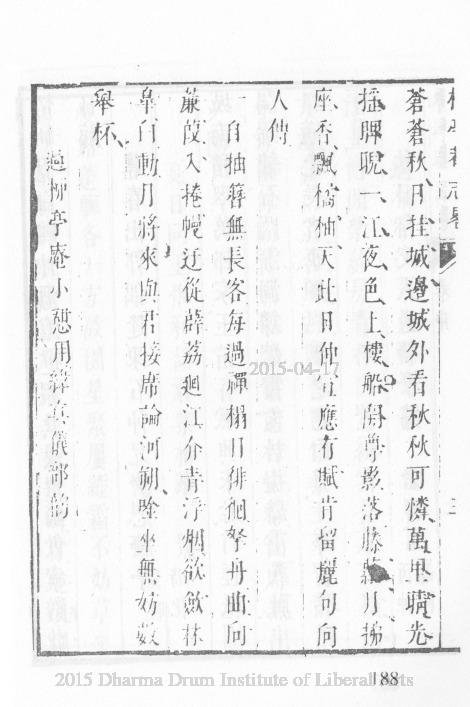 蒼蒼秋日挂城邊城外看秋秋可憐萬里晴光
搖睥睨一江夜色上樓船開尊影落藤蘿月揚
座香飄橘柚天此日仲宣應有賦肯留麗句向
人傳
一自抽簪無長客每過禪榻日徘徊孥舟曲向
蒹葭入捲幔迂從薜荔廻江介青浮烟欲斂林
皐白動月將來與君接席論河朔跌坐無妨數
舉杯
過柳亭庵小憩用韓真儀部韵
2015-04-17
2015 Dharma Drum Institute of Liberal Arts
188